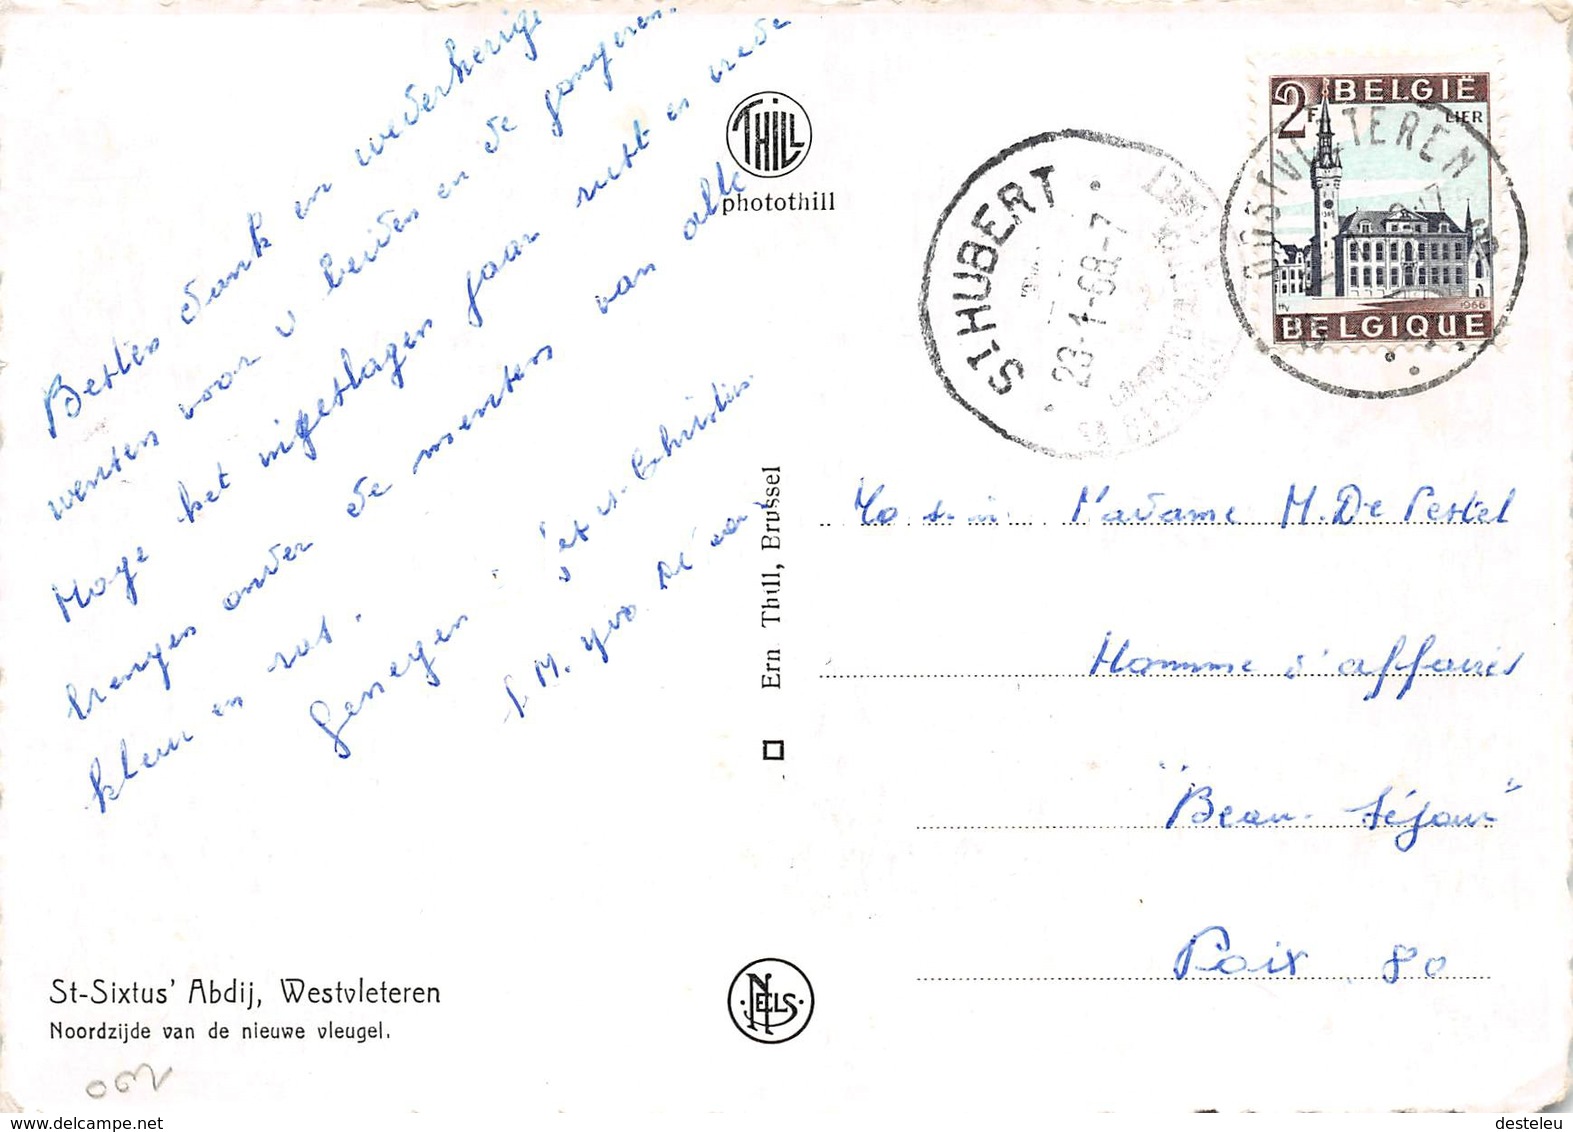 Besten dank en wederkerige
wensen voor U beiden en de jongeren.
Moge het ingeslagen jaar rust en vrede
brengen onder de mensen van alle
kleur en ras.
Genegen
f. M. Yvo
THILL
photothill
Ern Thill, Brussel
ST HUBERT
23-1-68-7
OOSTVLETEREN
2F BELGIË
LIER
1966
BELGIQUE
Madame M. De Pestel
Homme d'affaires
"Beau-Séjour"
Poix 80
St-Sixtus' Abdij, Westvleteren
Noordzijde van de nieuwe vleugel.
NELS
desteleu